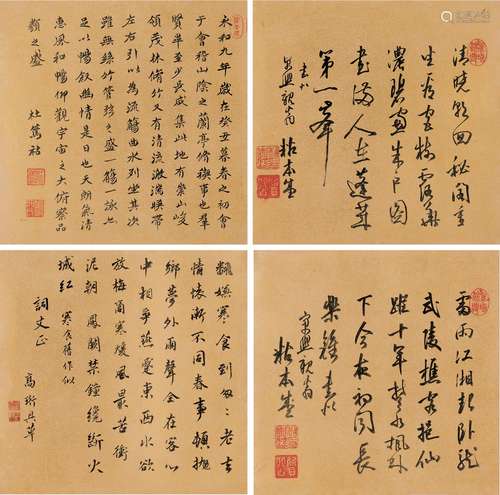 清曉朝回秘閣重
坐看宮樹露華
濃碧窗朱戶圖
書滿人在蓬萊
第一峯
書似
親翁
粘本盛
永和九年歲在癸丑暮春之初會
于會稽山陰之蘭亭脩禊事也羣
賢畢至少長咸集此地有崇山峻
領茂林脩竹又有清流激湍暎帶
左右引以為流觴曲水列坐其次
雖無絲竹管弦之盛一觴一詠亦
足以暢敘幽情是日也天朗氣清
惠風和暢仰觀宇宙之大俯察品
類之盛
杜篤祜
雷雨江湘起臥龍
武陵樵客躡仙
蹤十年楚水楓林
下今夜初聞長
樂鐘 書似
親翁
粘本盛
嫌寒食到匆匆老去
情懷漸不同春事頓拋
鄉夢外雨聲全在客心
中相爭燕蹙東西水欲
放梅寒煖風最苦衝
泥朝鳳闕禁鐘纔斷火
城紅 寒食作似
詞丈正
高珩具草